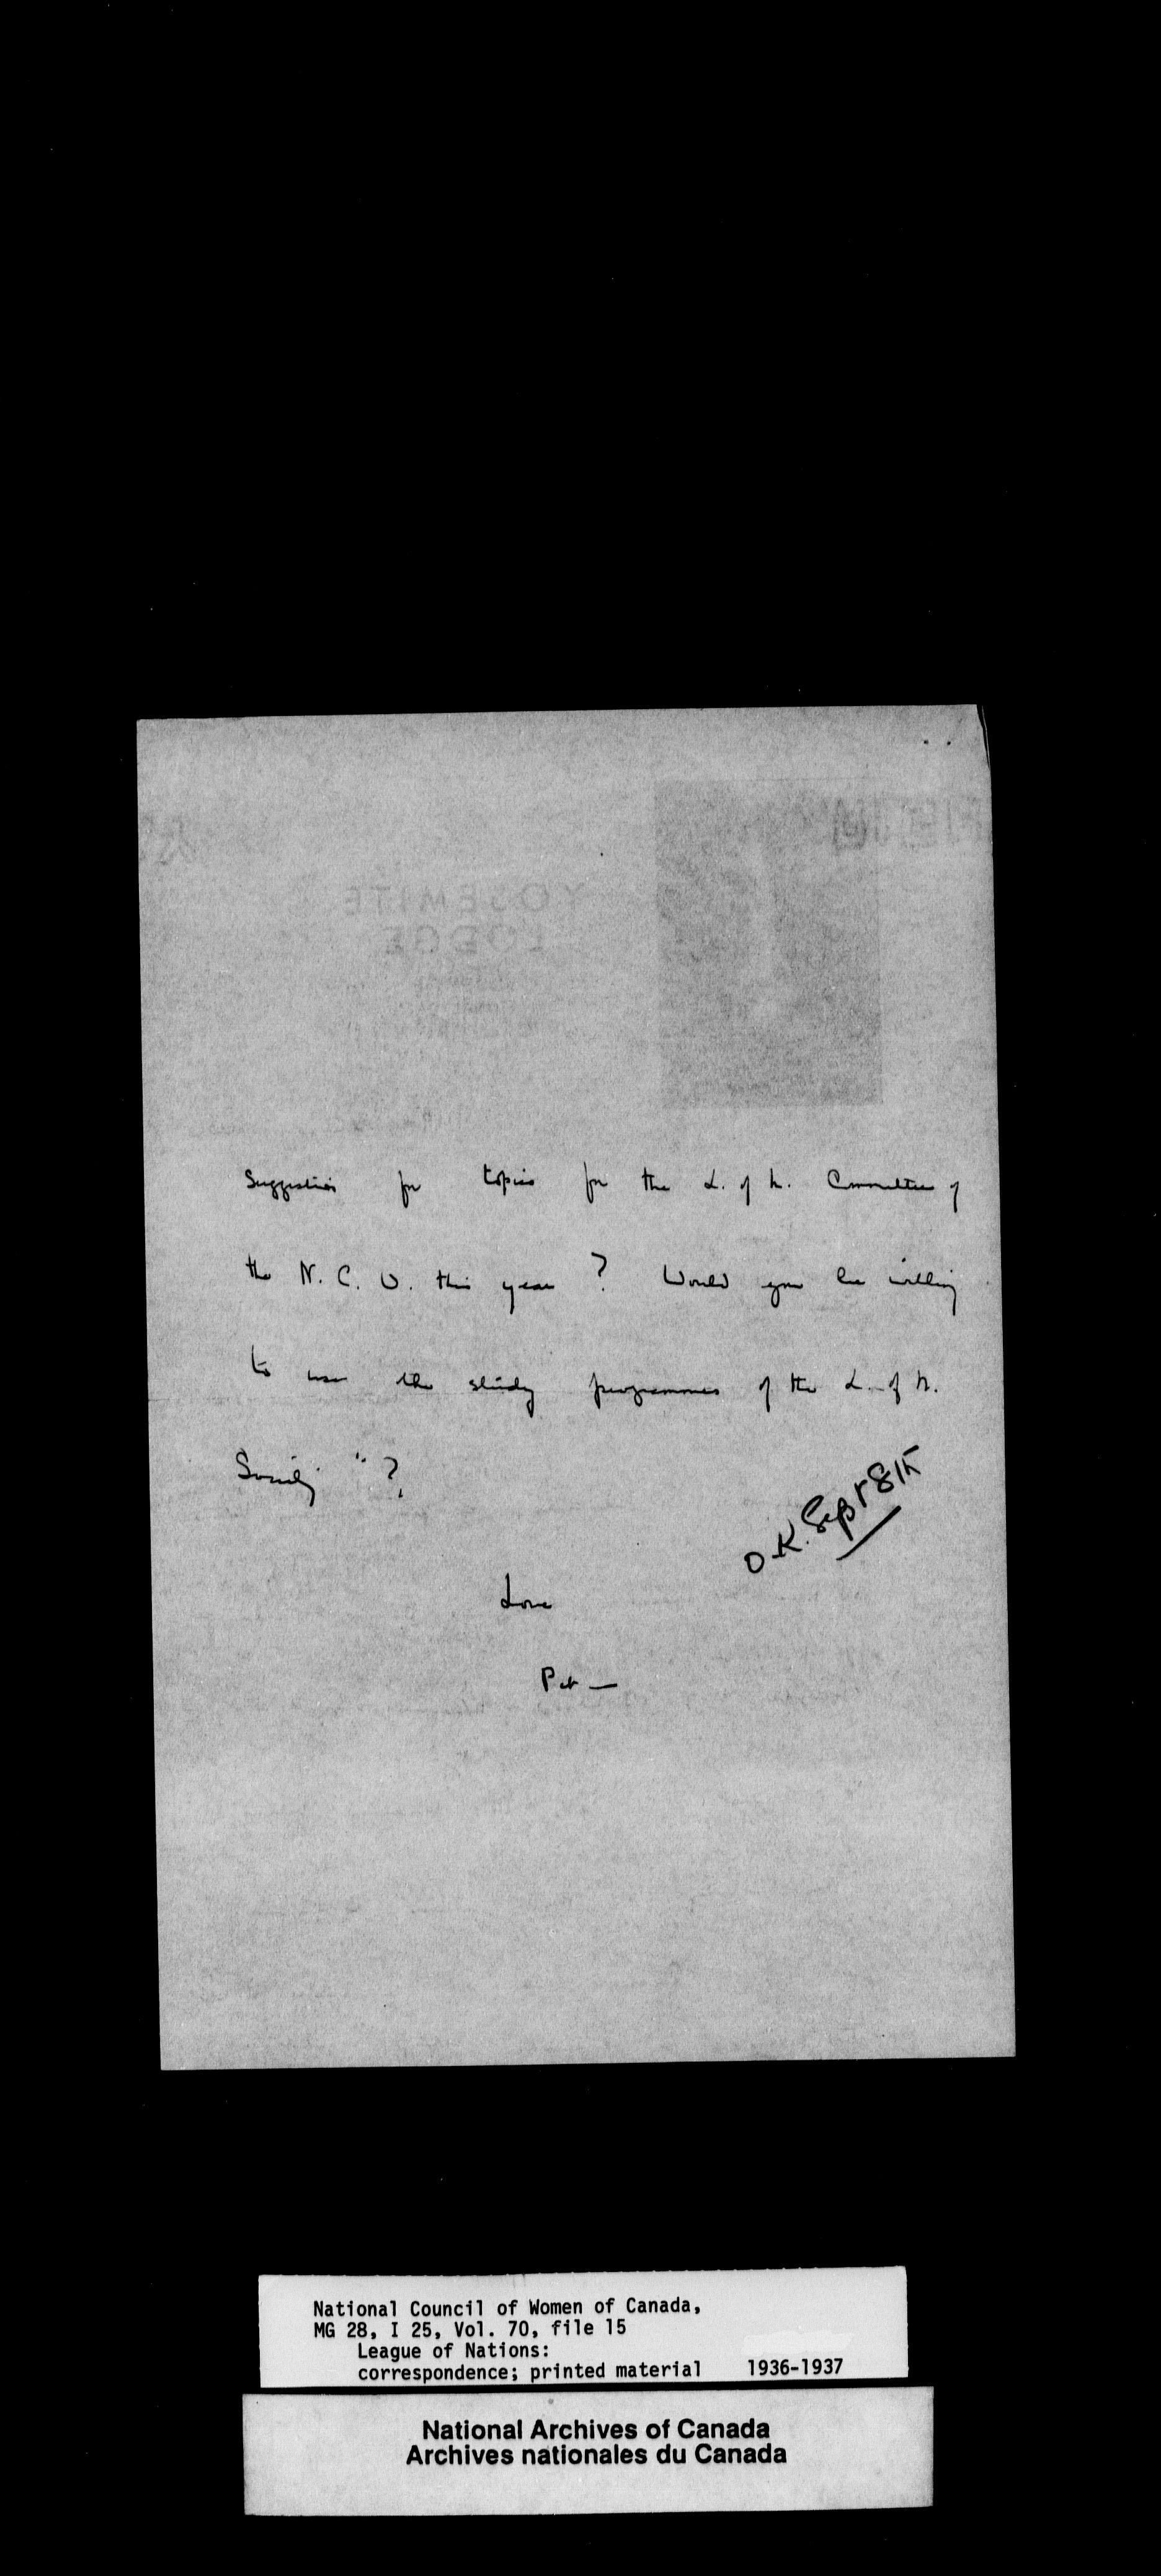 YOSEMITE
LODGE
Suggestions for topics for the L. of N. Committee of
the N. C. W. this year? Would you be willing
to use the study programmes of the L. of N.
Society"?
O.K. Sept 8th
Love
Pat —
National Council of Women of Canada,
MG 28, I 25, Vol. 70, file 15
League of Nations:
correspondence; printed material 1936-1937
National Archives of Canada
Archives nationales du Canada